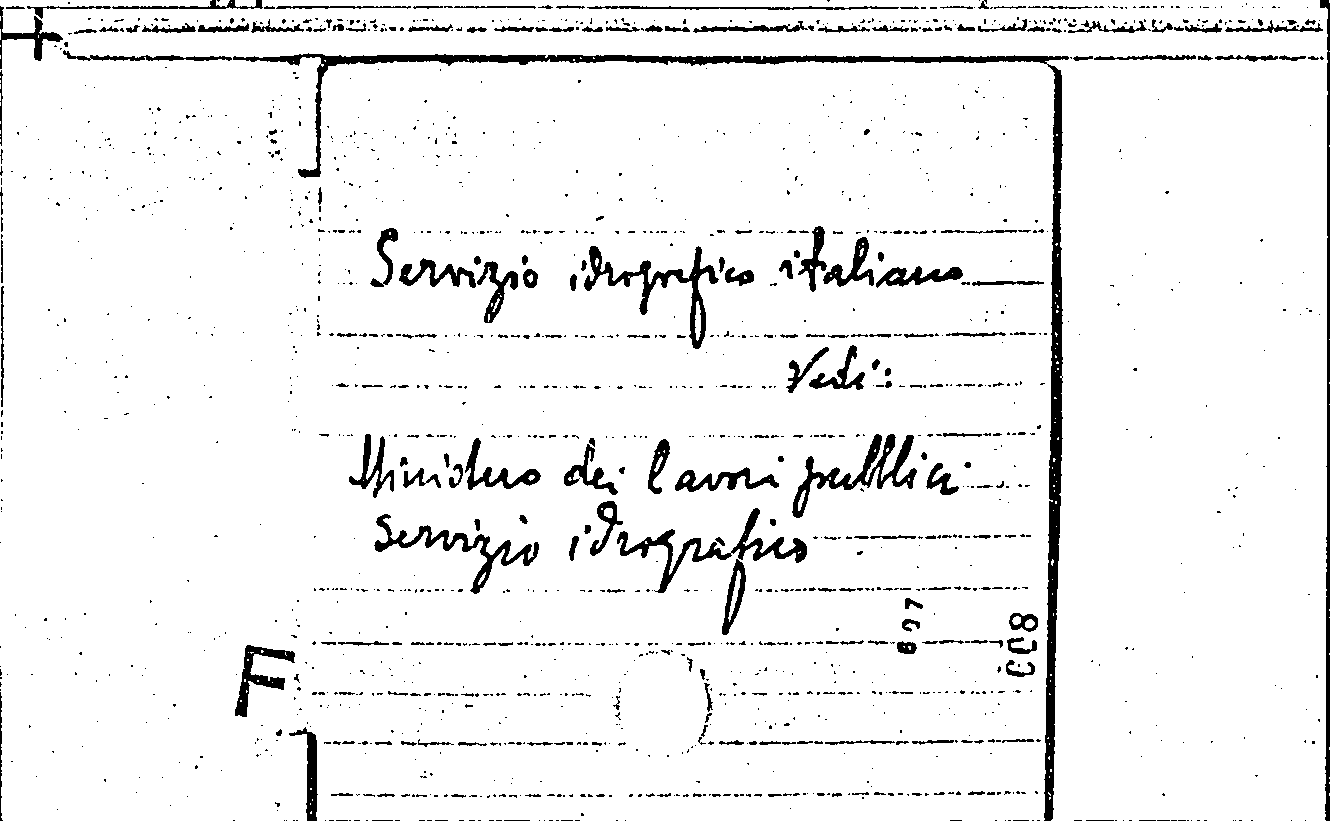 Servizio idrografico italiano
Vedi:
Ministero dei lavori pubblici
Servizio idrografico
F